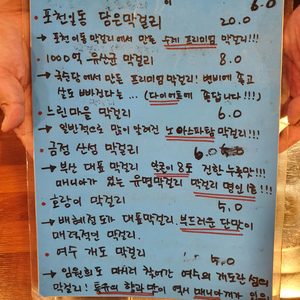 6.0
· 포천일동 담은막걸리 20.0
→ 포천 이동 막걸리에서 만든 수제 프리미엄 막걸리!!!
· 1000억 유산균 막걸리 8.0
→ 국순당에서 만든 프리미엄 막걸리! 변비에 좋고
(다이어트에 좋답니다!!!)
· 느린마을 막걸리 6.0
→ 일반적으로 많이 알려진 노 아스파탐 막걸리!!!
· 금정 산성 막걸리 6.0
→ 부산 대표 막걸리 진한 누룩맛!!!
매니아가 있는 유명막걸리 막걸리 명인 1호!!!
· 호랑이 막걸리 5.0
→ 배혜정도가 대표막걸리. 부드러운 단맛이
매력적인 막걸리
· 여수 개도 막걸리 5.0
→ 임원희도 마시러 여수의 개도란 섬의
막걸리!